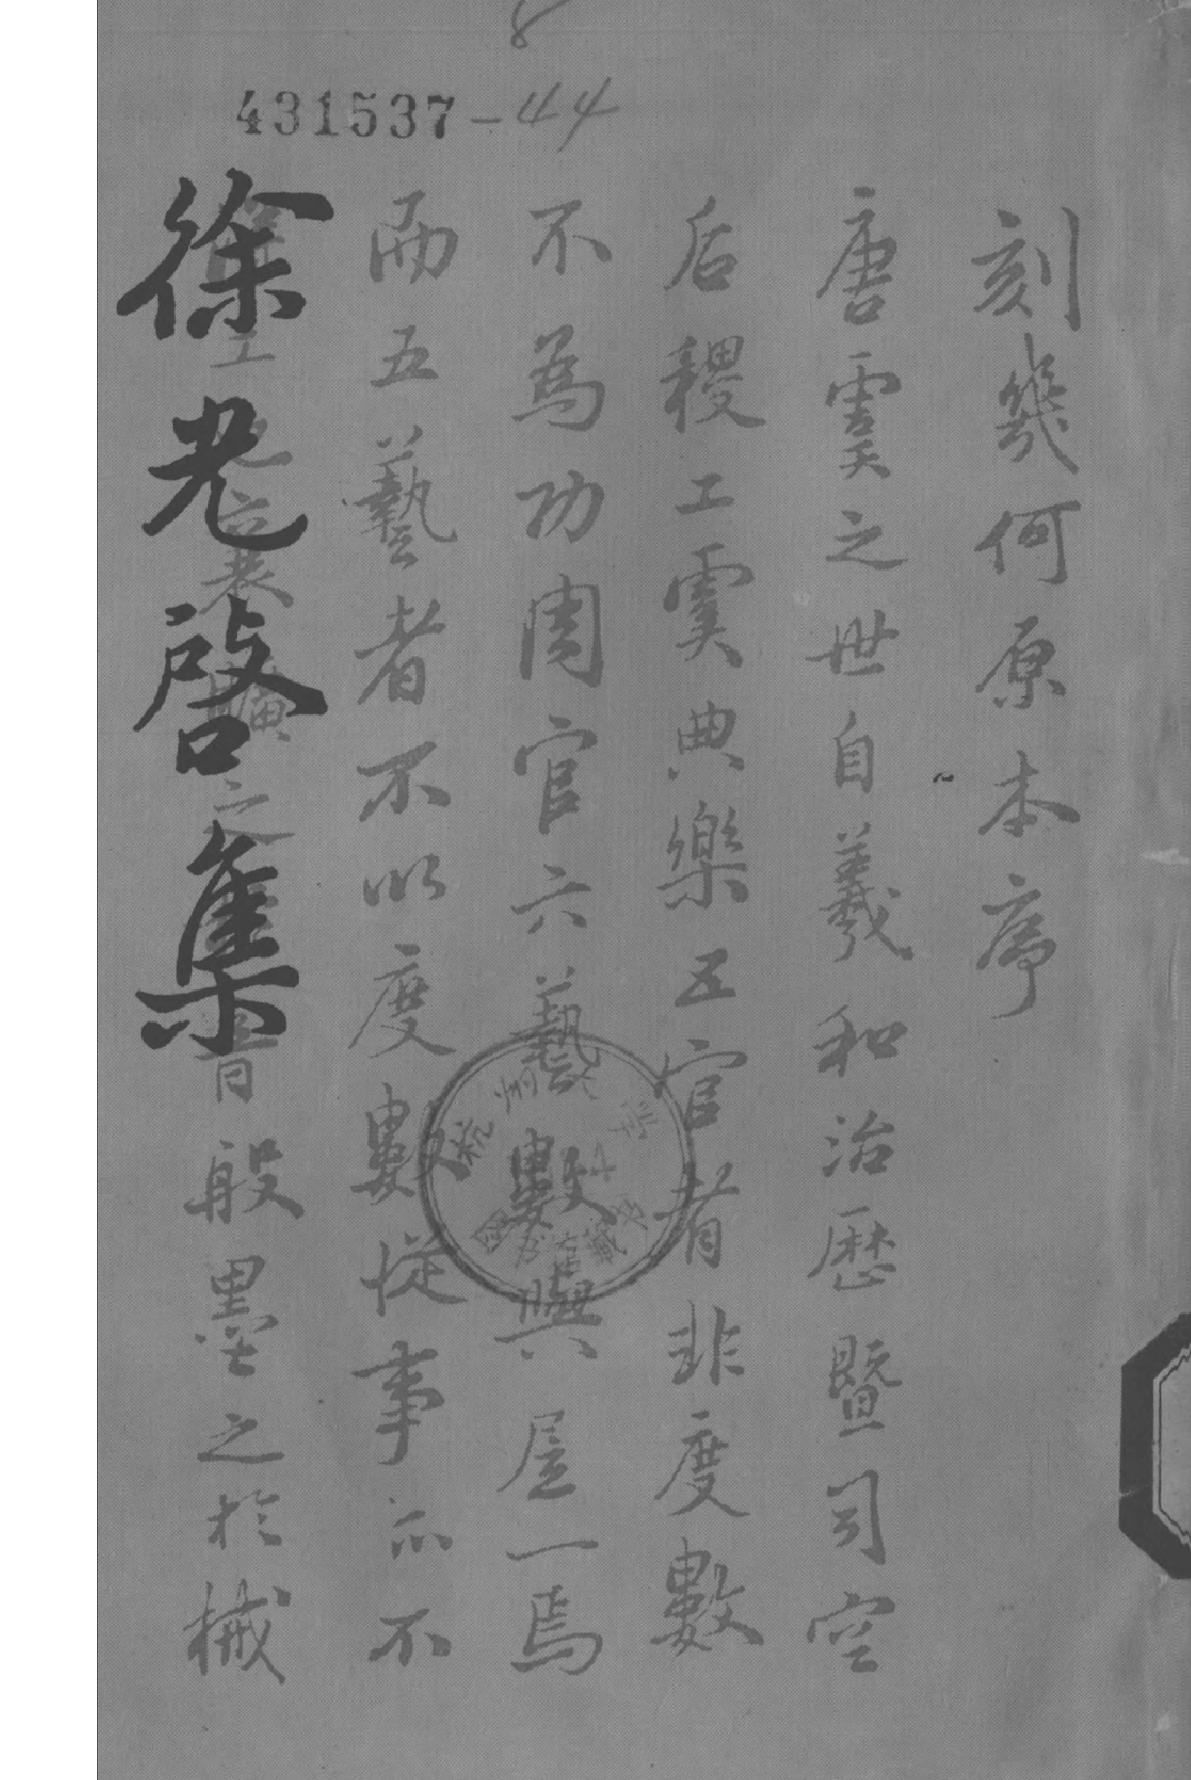 431537-44
刻幾何原本序
唐虞之世自羲和治歷暨司空
后稷工虞典樂五官者非度數
不為功周官六藝數與居一焉
而五藝者不以度數從事亦不
得工也襄曠之於音般墨之於械
徐光啓集